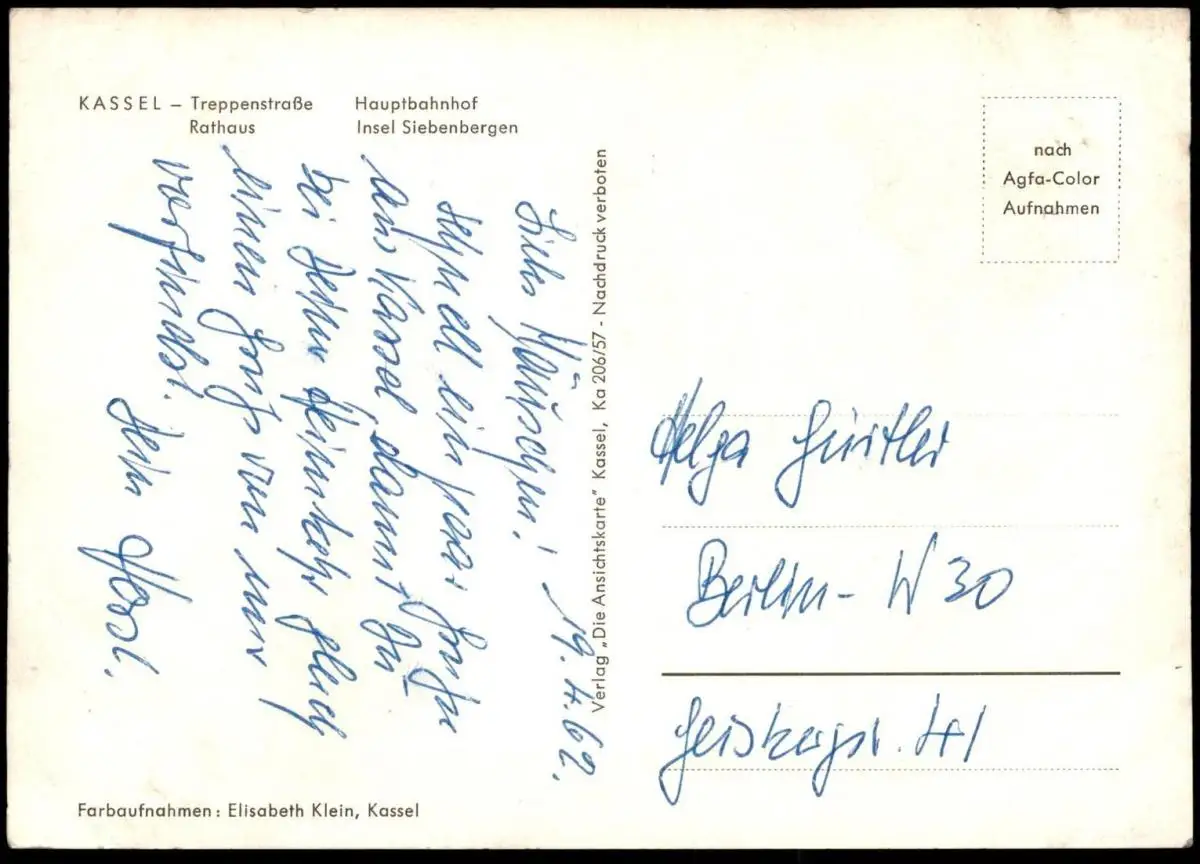 KASSEL – Treppenstraße Hauptbahnhof
Rathaus Insel Siebenbergen
nach
Agfa-Color
Aufnahmen
19.4.62.
Liebes Mäuschen!
schnell ein paar Grüße
aus Kassel, damit Du
bei Deiner Heimkehr gleich
einen Gruß von mir
vorfindest.
Dein Horst.
Verlag „Die Ansichtskarte" Kassel, Ka 206/57 - Nachdruck verboten
Helga Gürtler
Berlin - W 30
Geisbergstr. 41
Farbaufnahmen: Elisabeth Klein, Kassel